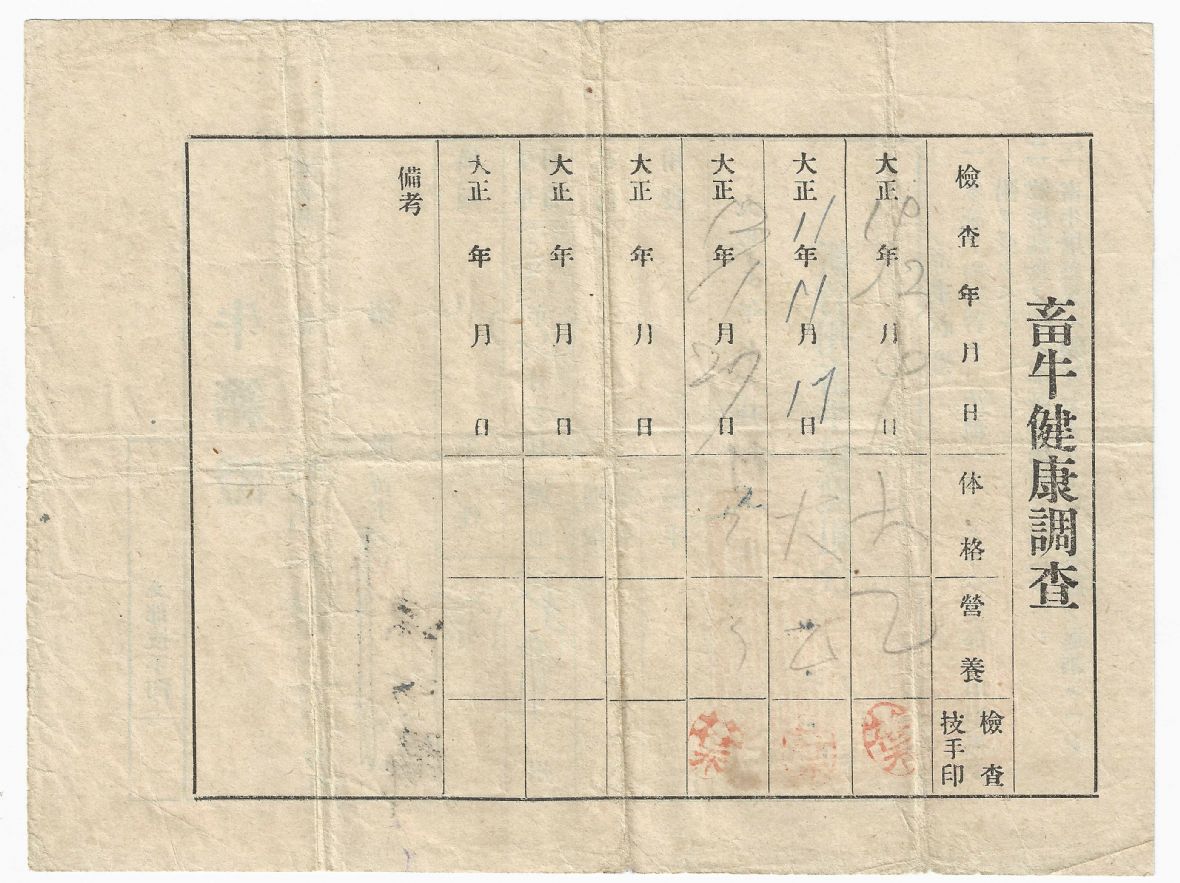 畜牛健康調査
檢査年月日 体格 營養 檢査技手印
大正10年12月10日 大 乙
大正11年11月17日 大 乙
大正13年7月27日
大正 年 月 日
大正 年 月 日
大正 年 月 日
備考